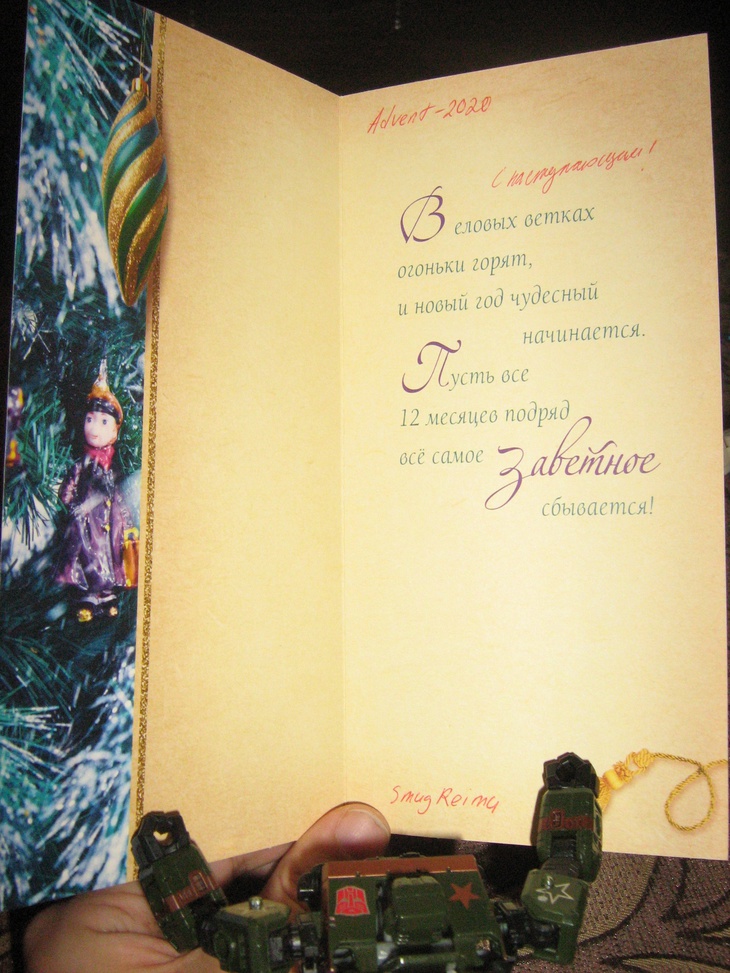 Advent-2020
С наступающим!
В еловых ветках
огоньки горят,
и новый год чудесный
начинается.
Пусть все
12 месяцев подряд
всё самое заветное
сбывается!
Smug Reimu